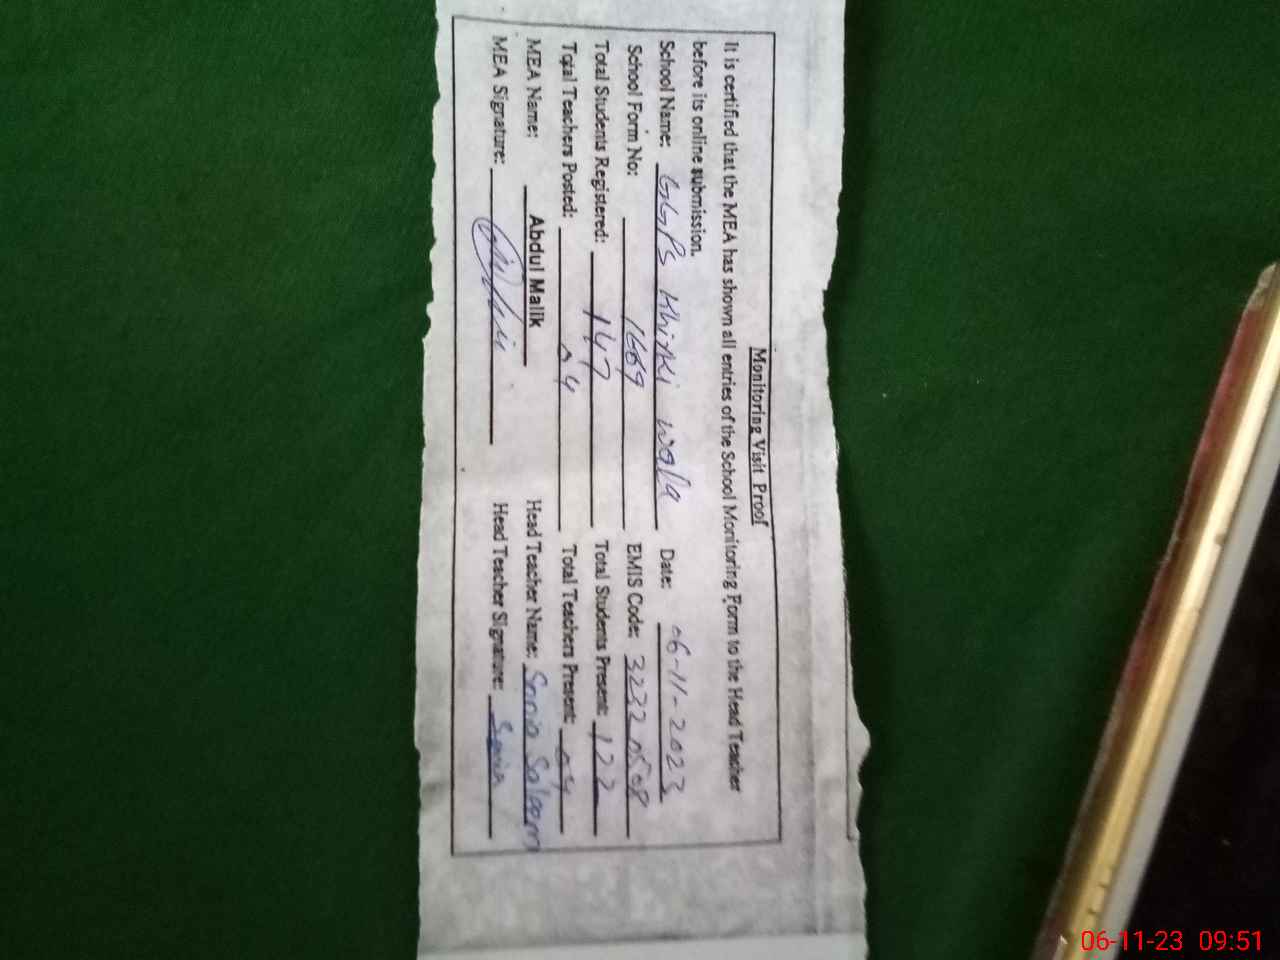 Monitoring Visit Proof
It is certified that the MEA has shown all entries of the School Monitoring Form to the Head Teacher
before its online submission.
School Name: GGPS Khirki wala Date: 06-11-2023
School Form No: 1669 EMIS Code: 32320508
Total Students Registered: 147 Total Students Present: 122
Total Teachers Posted: 04 Total Teachers Present: 04
MEA Name: Abdul Malik Head Teacher Name: Sonia Saleem
MEA Signature: Head Teacher Signature: Sonia
06-11-23 09:51